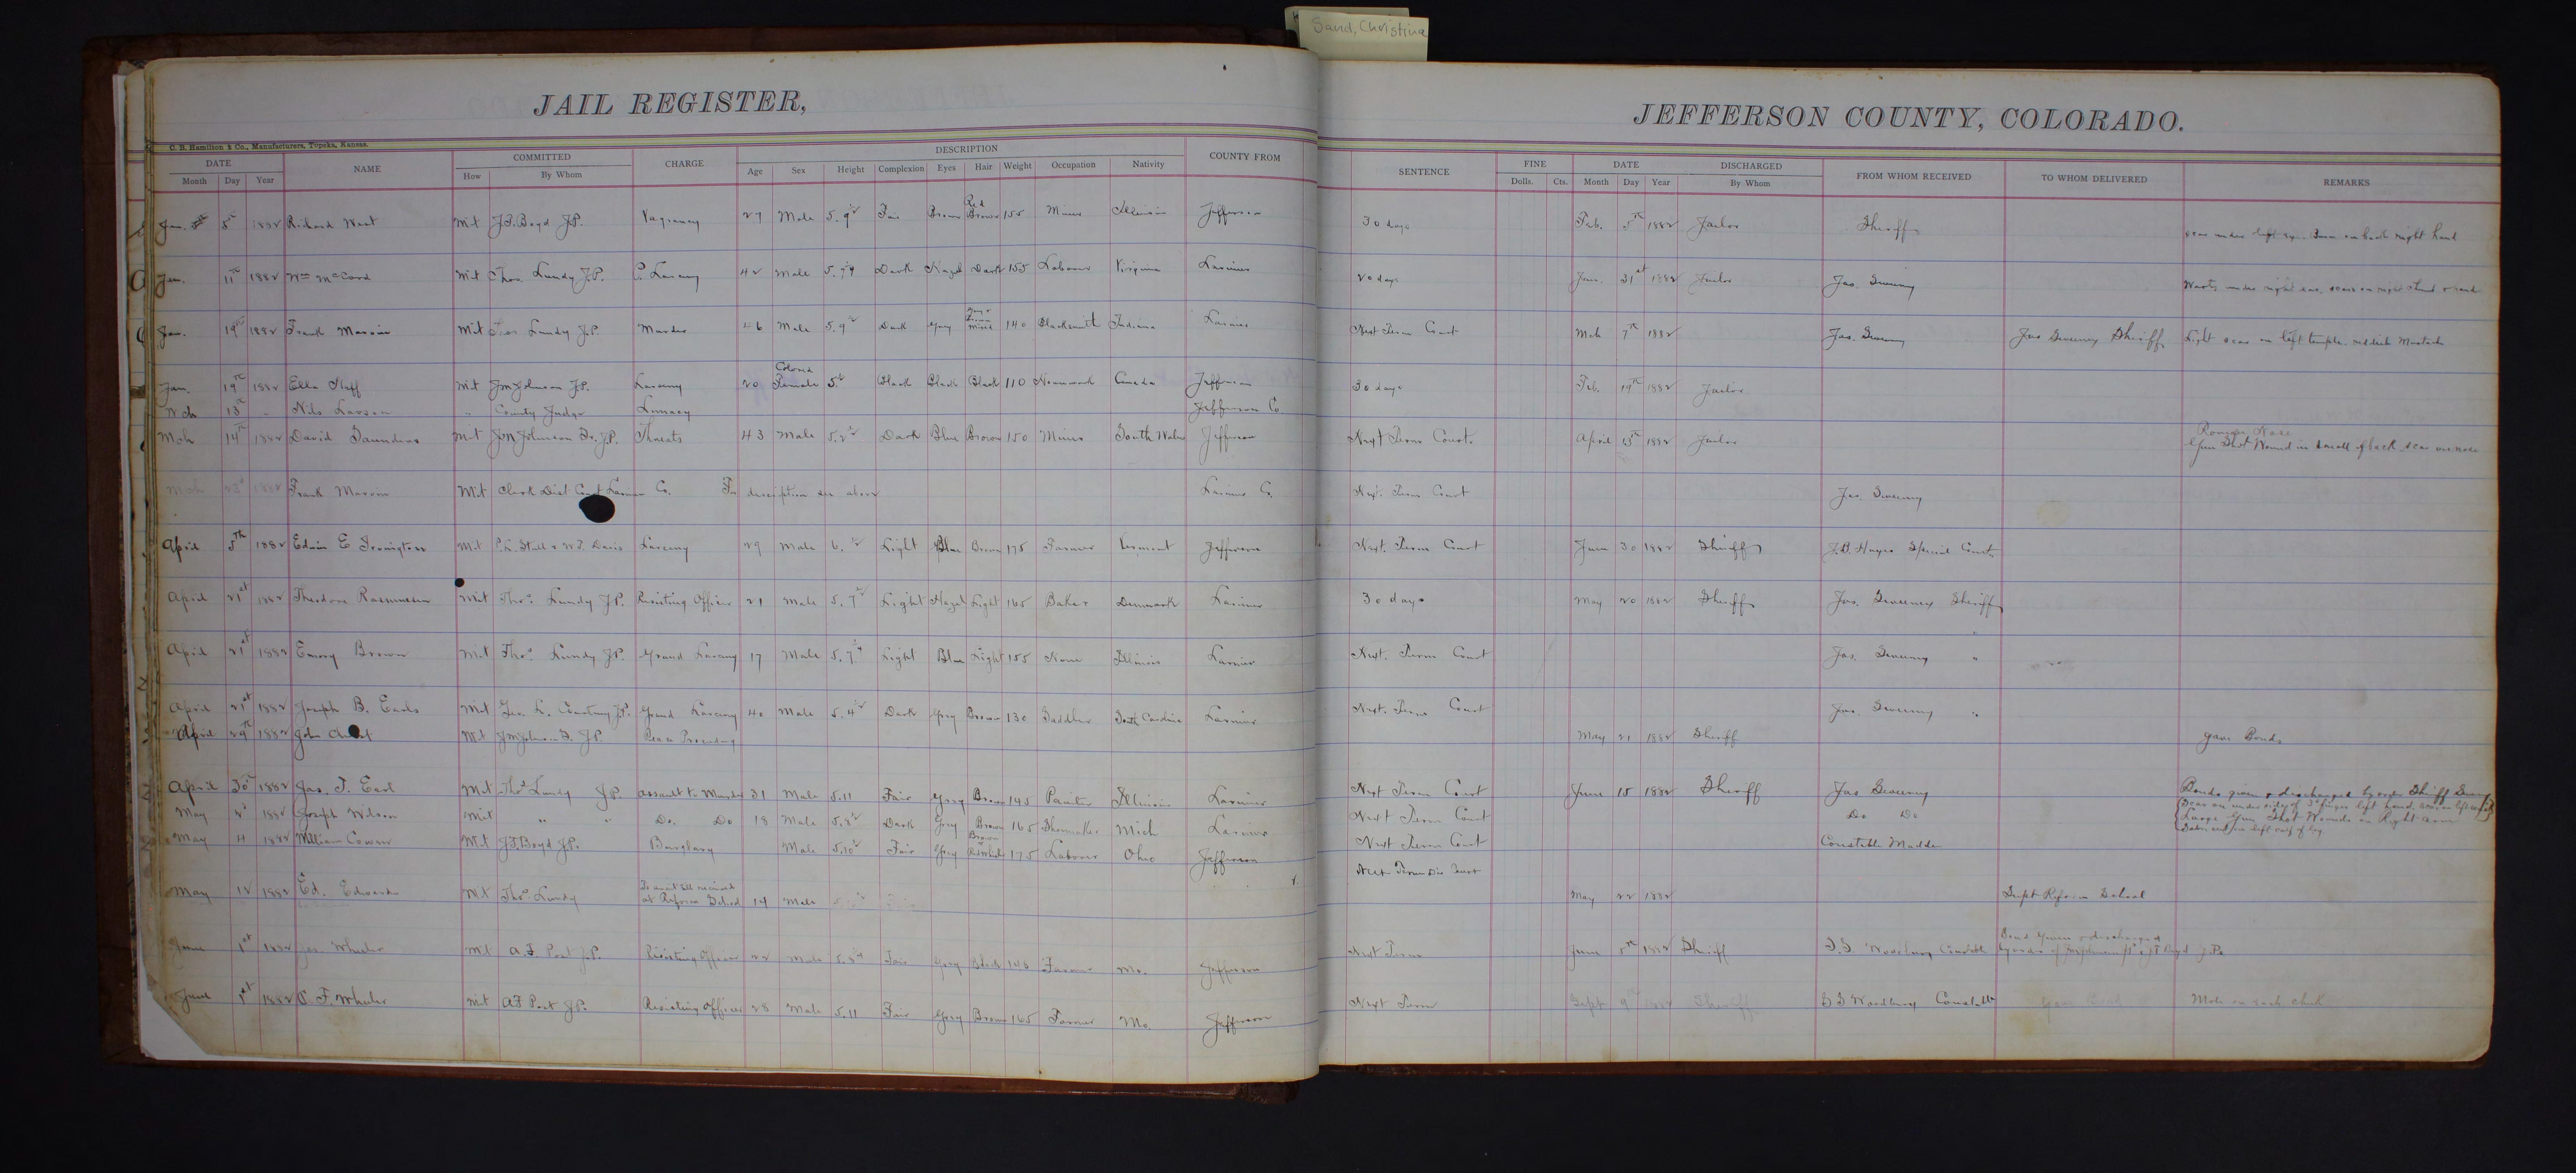 Sand, Christina
JAIL REGISTER,
JEFFERSON COUNTY, COLORADO.
C. B. Hamilton & Co., Manufacturers, Topeka, Kansas.
DATE NAME COMMITTED CHARGE DESCRIPTION COUNTY FROM SENTENCE FINE DATE DISCHARGED FROM WHOM RECEIVED TO WHOM DELIVERED REMARKS
Month Day Year How By Whom Age Sex Height Complexion Eyes Hair Weight Occupation Nativity Dolls. Cts. Month Day Year By Whom
Jan. 5th 1882 Richard West Mit J.F. Boyd J.P. Vagrancy 27 Male 5.9½ Fair Brown Red Brown 155 Miner Illinois Jefferson 30 days Feb. 5th 1882 Jailor Sheriff scar under left eye. on back right hand
Jan. 11th 1882 Wm McCord Mit Thos. Lundy J.P. P. Larceny 42 Male 5.7¼ Dark Hazel Dark 155 Laborer Virginia Larimer 20 days Jan. 31st 1882 Jailor Jas. Sweeney Warts under right ear, scars on right hand
Jan. 19th 1882 Frank Marion Mit Thos Lundy J.P. Murder 46 Male 5.9½ Dark Grey mixed 140 Blacksmith Indiana Larimer Next Term Court Mch 7th 1882 Jas. Sweeney Jas Sweeney Sheriff Light scar on left temple. reddish Mustache
Jan. 19th 1882 Ella Huff Mit Jm Johnson J.P. Larceny 20 Colored Female 5. Black Black Black 110 Canada Jefferson 30 days Feb. 19th 1882 Jailor
Mch 13th " Nils Larson " County Judge Lunacy Jefferson Co.
Mch 14th 1882 David Saunders Mit Jm Johnson Sr. J.P. Threats 43 Male 5.2½ Dark Blue Brown 150 Miner South Wales Jefferson Next Term Court April 15th 1882 Jailor Roman Nose
Gun Shot Wound in small of back scar on nose
Mch 23d 1882 Frank Marion Mit Clerk Dist Court Larimer Co. For description see above Larimer Co. Next. Term Court Jas. Sweeney
April 5th 1882 Edwin E Mit Larceny 29 Male 6. Light Blue Brown 175 Farmer Vermont Jefferson Next. Term Court June 30 1882 Sheriff J.D. Hayes Special
April 21st 1882 Theodore Rasmussen Mit Thos. Lundy J.P. Resisting Officer 21 Male 5.7½ Light Hazel Light 165 Baker Denmark Larimer 30 days May 20 1882 Sheriff Jas. Sweeney Sheriff
April 21st 1882 Emory Brown Mit Thos. Lundy J.P. Grand Larceny 17 Male 5.7¼ Light Blue Light 155 None Illinois Larimer Next. Term Court Jas. Sweeney "
April 21st 1882 Joseph B. Earls Mit J.P. Grand Larceny 40 Male 5.4½ Dark Grey Brown 130 Saddler South Carolina Larimer Next. Term Court Jas. Sweeney "
April 29th 1882 John Mit J.P. May 21 1882 Sheriff gave Bonds
April 30th 1882 Jas. T. Earl Mit Thos Lundy J.P. Assault to Murder 31 Male 5.11 Fair Grey Brown 145 Painter Illinois Larimer Next Term Court June 15 1882 Sheriff Jas Sweeney Bonds given & discharged by order Sheriff Sweeney
May 2d 1882 Joseph Wilson Mit " " Do. Do 18 Male 5.8½ Dark Grey Brown 165 Shoemaker Mich Larimer Next Term Court Do Do Scar on under side of 3d finger left hand.
Large Gun Shot Wounds on Right arm
May 4 1882 William Mit J.F. Boyd J.P. Burglary Male 5.10½ Fair Grey Brown 175 Laborer Ohio Jefferson Next Term Court Constable Madden
May 12 1882 Ed. Edwards Mit Thos Lundy To await till received at Reform School 14 Male Next Term Dis Court May 22 1882 Supt Reform School
June 1st 1882 Wheeler Mit A.F. Post J.P. Resisting Officer 22 Male Fair Grey Black 145 Farmer Mo. Jefferson Next Term June 5th 1882 Sheriff Woodbury Constable Bond given & discharged
by order of Boyd J.P.
June 1st 1882 C. F. Wheeler Mit A F Post J.P. Resisting Officer 28 Male 5.11 Fair Grey Brown 165 Farmer Mo. Jefferson Next Term Sept 9 Sheriff Woodbury Constable Mole on each cheek